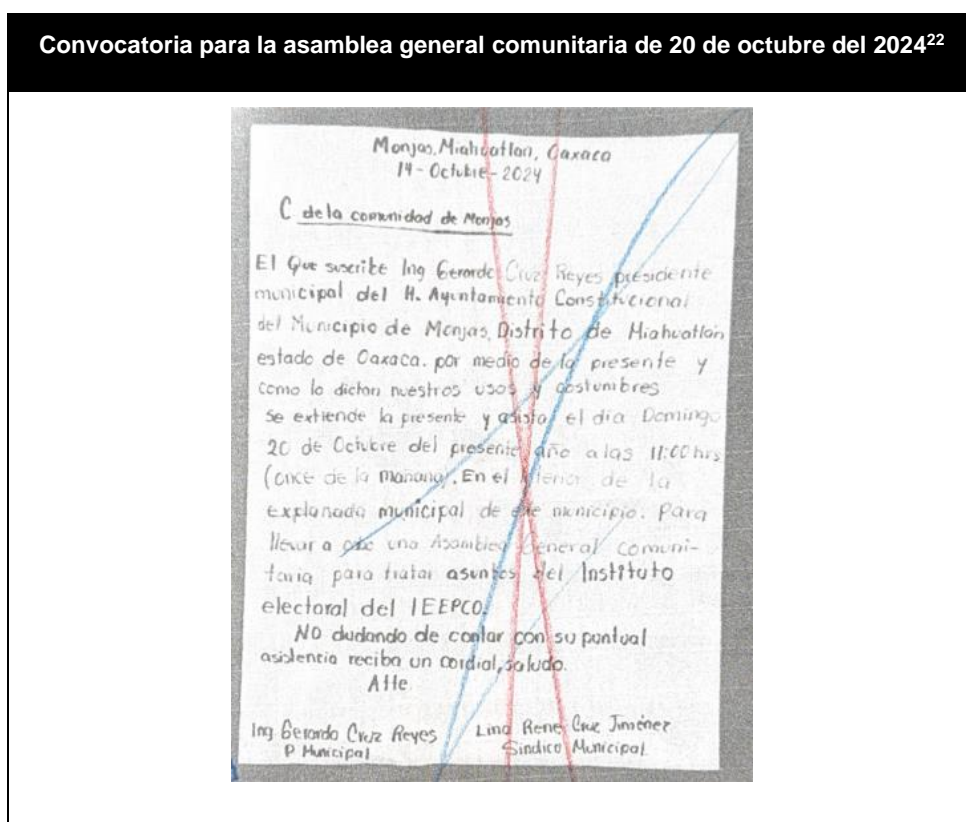 Convocatoria para la asamblea general comunitaria de 20 de octubre del 2024²²
Monjas, Miahuatlan, Oaxaca
14-Octubre-2024
C de la comunidad de Monjas
El Que suscribe Ing Gerardo Cruz Reyes presidente
municipal del H. Ayuntamiento Constitucional
del Municipio de Monjas, Distrito de Miahuatlan
estado de Oaxaca. por medio de la presente y
como lo dictan nuestros usos y costumbres
se extiende la presente y asista el dia Domingo
20 de Octubre del presente año a las 11:00 hrs
(once de la mañana). En el interior de la
explanada municipal de este municipio. Para
llevar a cabo una Asamblea General Comuni-
taria para tratar asuntos del Instituto
electoral del IEEPCO.
NO dudando de contar con su puntual
asistencia reciba un cordial, saludo.
Atte
Ing Gerardo Cruz Reyes Lino Rene Cruz Jiménez
P Municipal Sindico Municipal